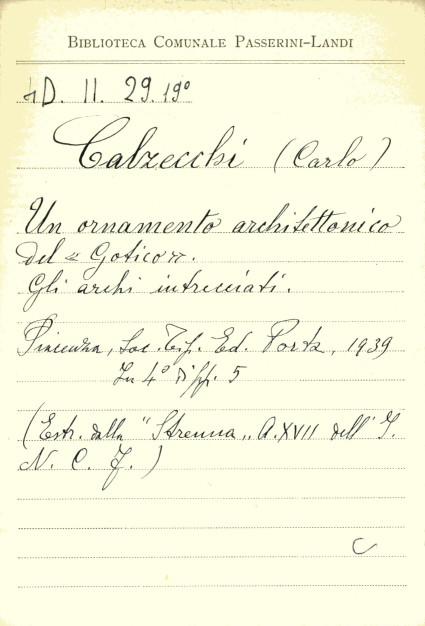 BIBLIOTECA COMUNALE PASSERINI-LANDI
4D. II. 29.19°
Calzecchi (Carlo)
Un ornamento architettonico
del « Gotico ».
Gli archi intrecciati.
Piacenza, Soc. Tip. Ed. Porta, 1939
In 4° pp. 5
(Estr. dalla "Strenna" A. XVII dell' I.
N. C. F.)
C